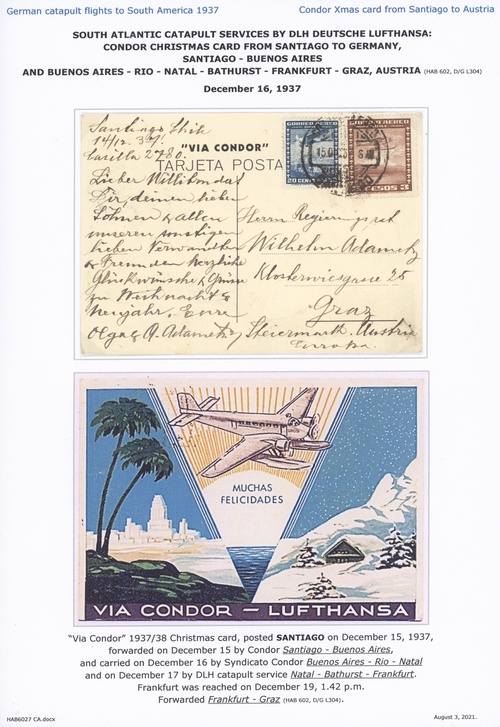 German catapult flights to South America 1937
Condor Xmas card from Santiago to Austria
SOUTH ATLANTIC CATAPULT SERVICES BY DLH DEUTSCHE LUFTHANSA:
CONDOR CHRISTMAS CARD FROM SANTIAGO TO GERMANY,
SANTIAGO - BUENOS AIRES
AND BUENOS AIRES - RIO - NATAL - BATHURST - FRANKFURT - GRAZ, AUSTRIA (HAB 602, D/G L304)
December 16, 1937
Santiago Chile
14/12 37.
Casilla 2780.
"VIA CONDOR"
TARJETA POSTA
CORREO AEREO
20 CENT
CORREO AEREO
PESOS 3
Lieber Willi
Dir, deinen lieben
Söhnen & allen
unseren sonstigen
lieben Verwandten
& Freunden herzliche
Glückwünsche & Grüsse
zu Weihnacht &
Neujahr. Eure
Olga & A. Adametz
Herrn Regierungsrat
Wilhelm Adametz
Klosterwiesgasse 25
Graz
Steiermark. Austria
Europa.
MUCHAS
FELICIDADES
VIA CONDOR — LUFTHANSA
"Via Condor" 1937/38 Christmas card, posted SANTIAGO on December 15, 1937,
forwarded on December 15 by Condor Santiago - Buenos Aires,
and carried on December 16 by Syndicato Condor Buenos Aires - Rio - Natal
and on December 17 by DLH catapult service Natal - Bathurst - Frankfurt.
Frankfurt was reached on December 19, 1.42 p.m.
Forwarded Frankfurt - Graz (HAB 602, D/G L304).
HAB6027 CA.docx
August 3, 2021.